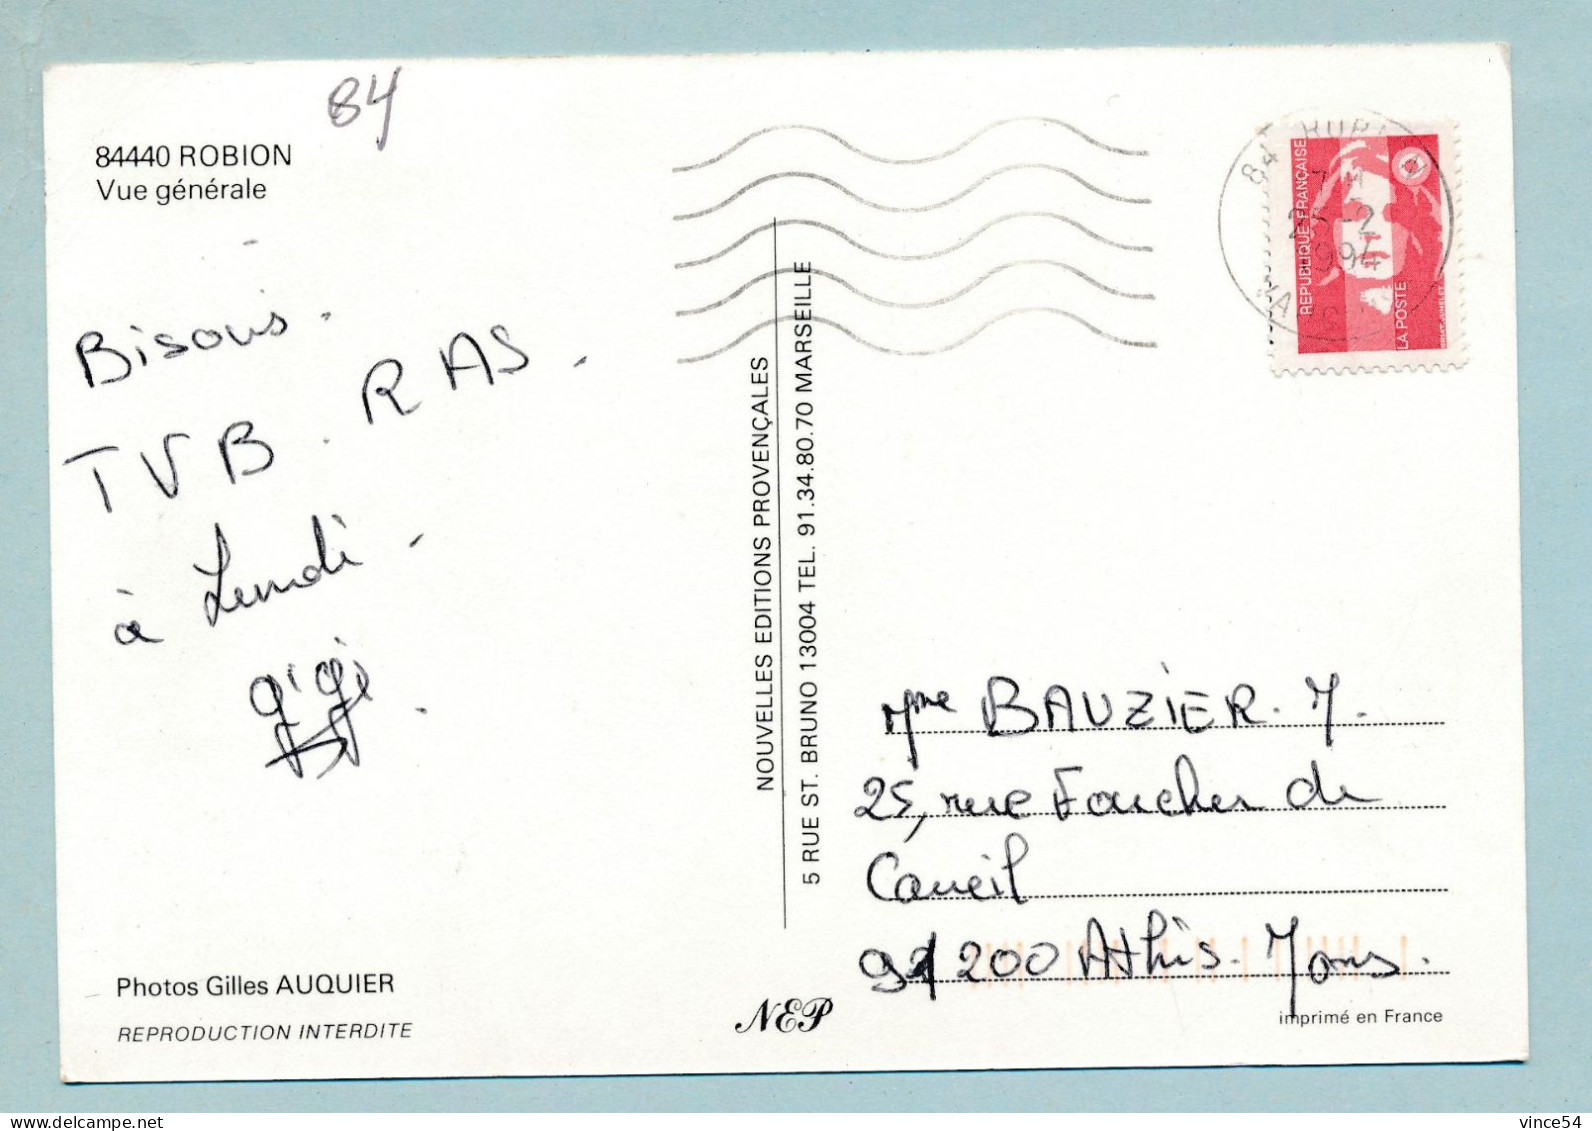 84
84440 ROBION
Vue générale
Bisous.
TVB. RAS.
à Lundi.
gigi.
Photos Gilles AUQUIER
REPRODUCTION INTERDITE
NOUVELLES EDITIONS PROVENÇALES
5 RUE ST. BRUNO 13004 TEL. 91.34.80.70 MARSEILLE
NEP
REPUBLIQUE FRANÇAISE
LA POSTE
84
25-2
1994
Mme BAUZIER. M.
25, rue Foucher de
Careil
91200 Athis. Mons.
imprimé en France
vince54